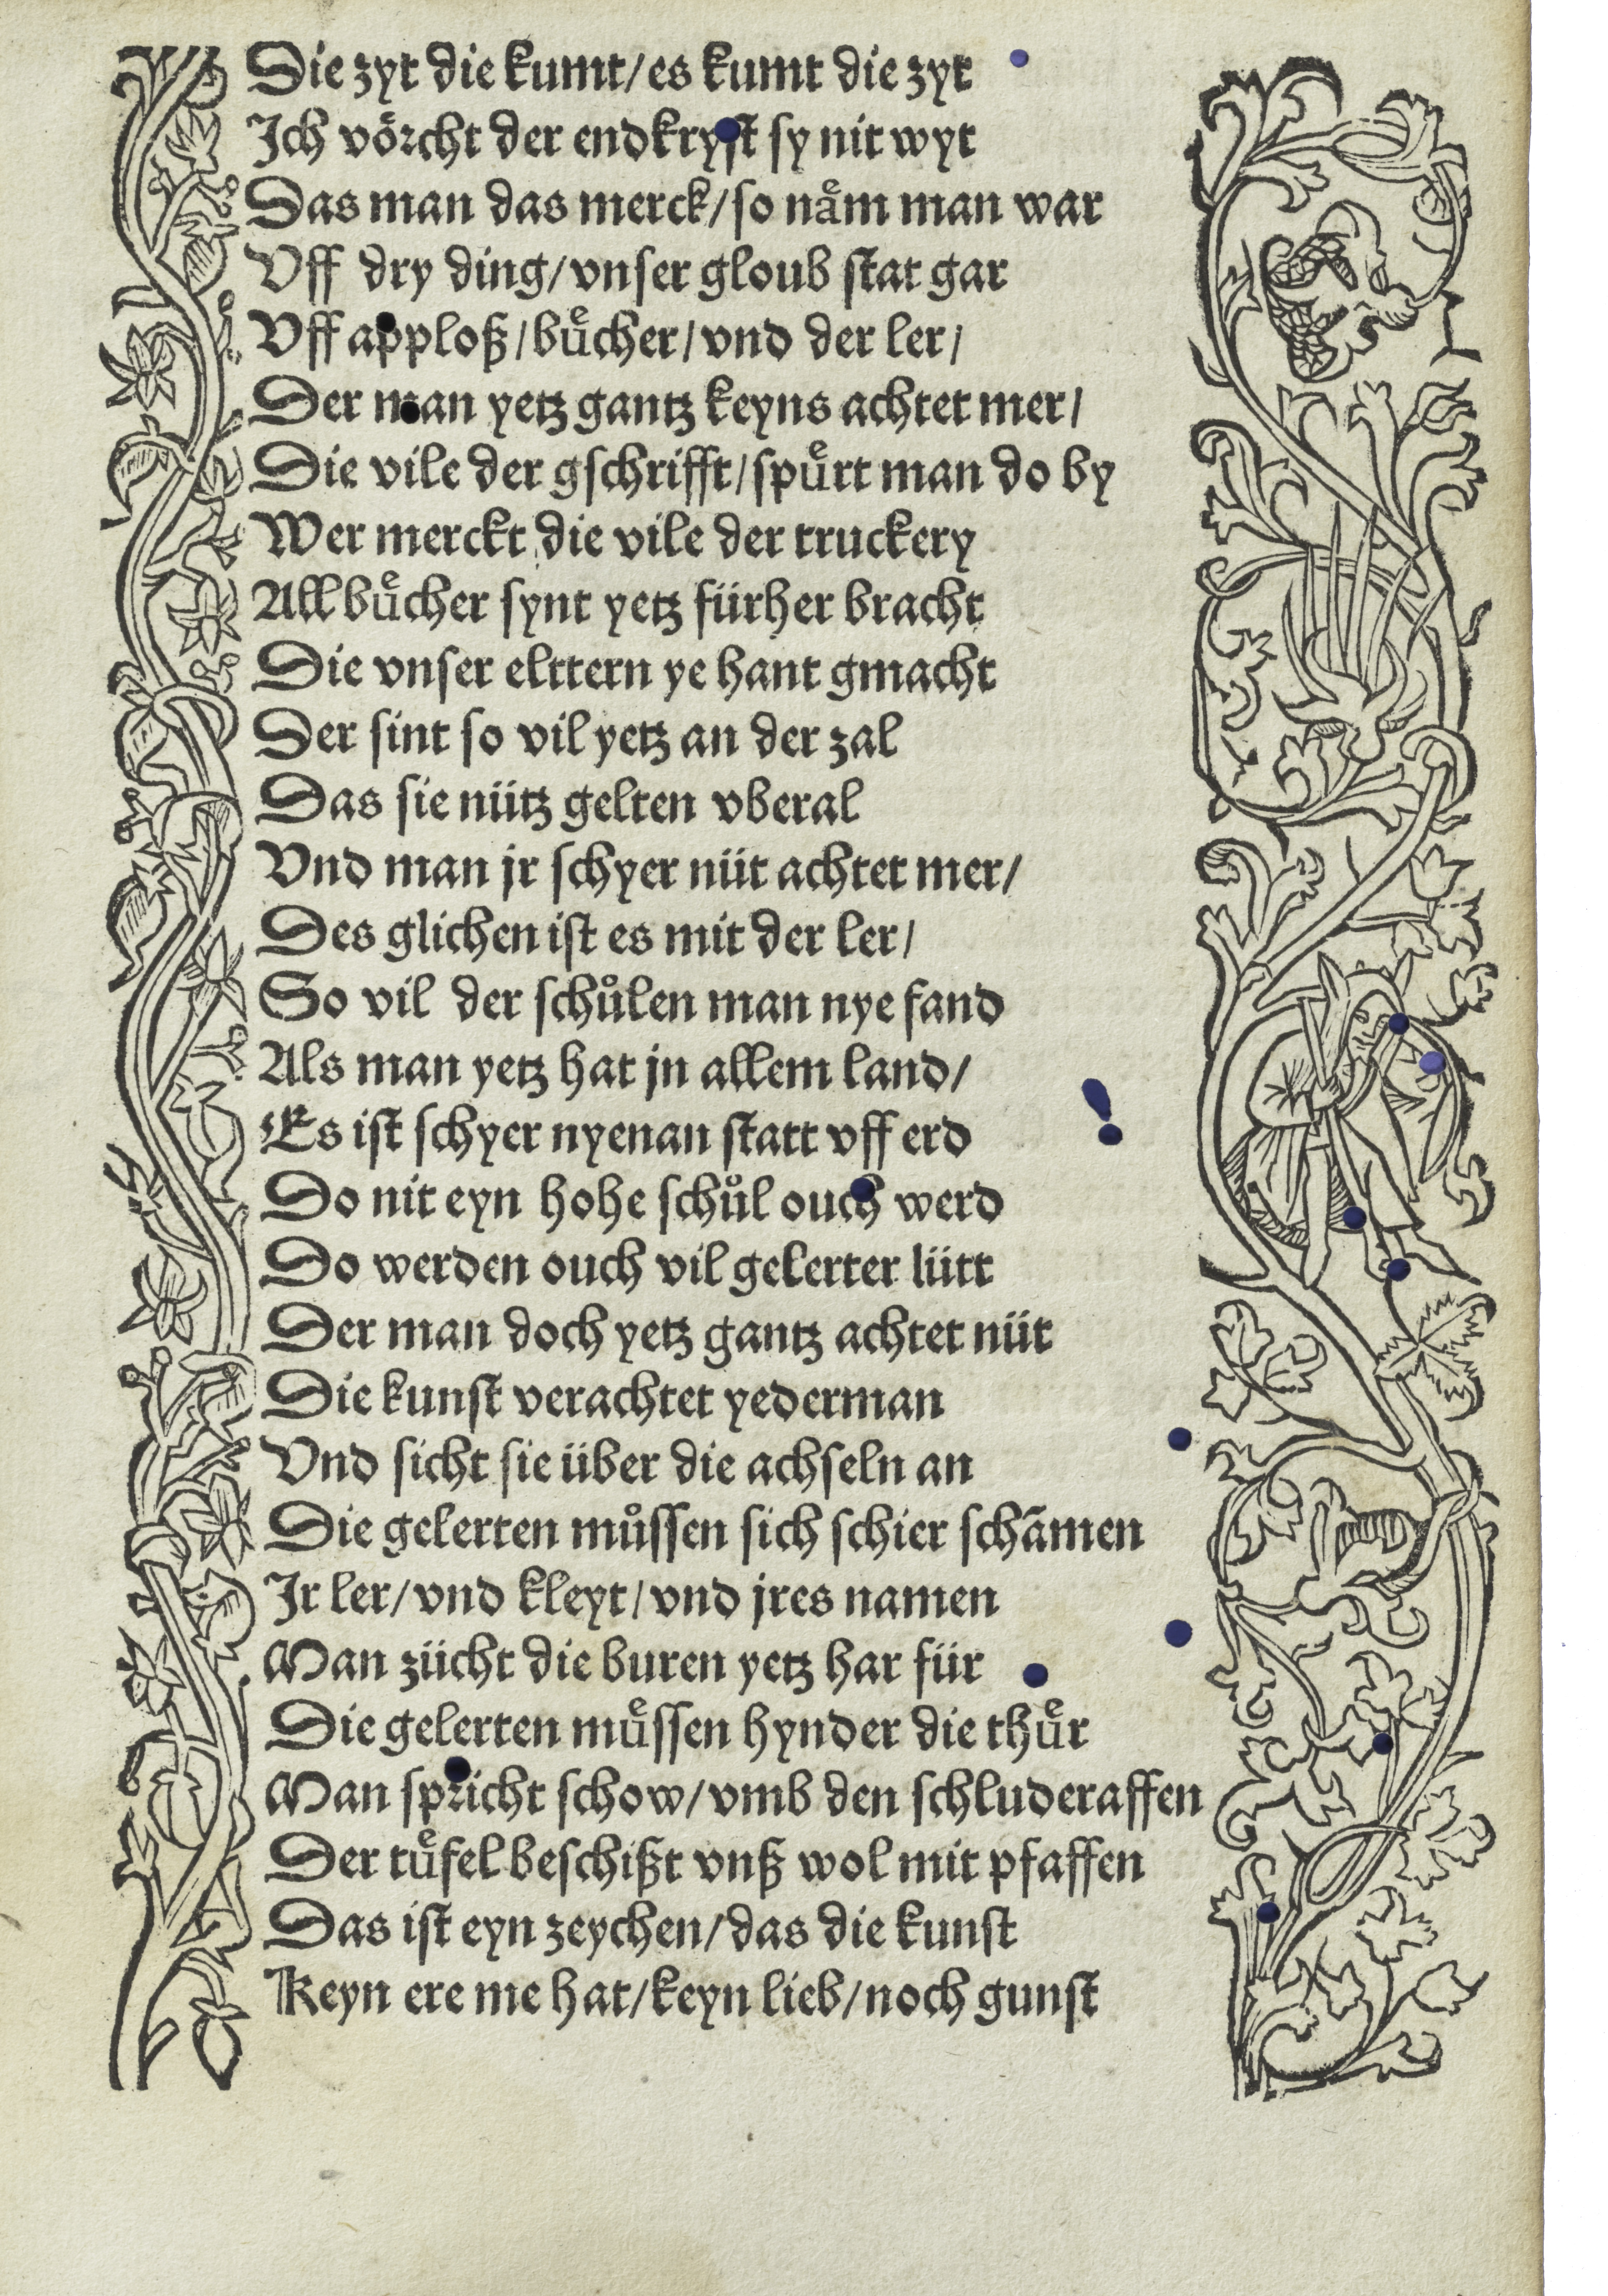 Die zyt die kumt/es kumt die zyt
Ich voͤrcht der endkryst sy nit wyt
Das man das merck/so naͤm man war
Vff dry ding/vnser gloub stat gar
Vff apploß/buͤcher/vnd der ler/
Der man yetz gantz keyns achtet mer/
Die vile der gschrifft/spuͤrt man do by
Wer merckt die vile der truckery
All buͤcher synt yetz fürher bracht
Die vnser elttern ye hant gmacht
Der sint so vil yetz an der zal
Das sie nütz gelten vberal
Vnd man jr schyer nüt achtet mer/
Des glichen ist es mit der ler/
So vil der schůlen man nye fand
Als man yetz hat jn allem land/
Es ist schyer nyenan statt vff erd
Do nit eyn hohe schůl ouch werd
Do werden ouch vil gelerter lütt
Der man doch yetz gantz achtet nüt
Die kunst verachtet yederman
Vnd sicht sie über die achseln an
Die gelerten můssen sich schier schãmen
Ir ler/vnd kleyt/vnd jres namen
Man zücht die buren yetz har für
Die gelerten muͤssen hynder die thuͤr
Man spricht schow/vmb den schluderaffen
Der tuͤfel beschißt vnß wol mit pfaffen
Das ist eyn zeychen/das die kunst
Keyn ere me hat/keyn lieb/noch gunst